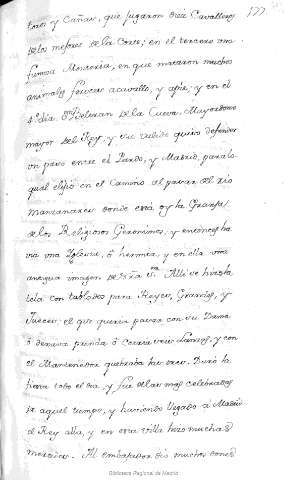 177
toros y Cañas, que jugaron diez Cavalleros
de los mejores de la Corte; en el tercero una
famosa Monteria, en que mataron muchos
animales feroces a cavallo, y a pie; y en el
4º dia Dn Beltran de la Cueva Mayordomo
mayor del Rey, y su valido quiso defender
un paso entre el Pardo, y Madrid, para lo
qual elijió en el Camino al pasar del rio
Manzanares donde está oy la Granja
de los Religiosos Geronimos, y entonces ha
via una Iglesia, ó hermita, y en ella una
antigua imagen de Nra Sra. Allí se hizo la
tela con tablados para Reyes, Grandes, y
Jueces: el que queria pasar con su Dama
ó dexava prenda ó Corria tres Lanzas, y con
el Mantenedor quebraba las tres. Duró la
fiesta todo el dia, y fue de las mas celebradas
de aquel tiempo, y haviendo llegado á Madrid
el Rey alla, y en esta villa hizo muchas
mercedes. Al embajador dió muchos dones
Biblioteca Regional de Madrid